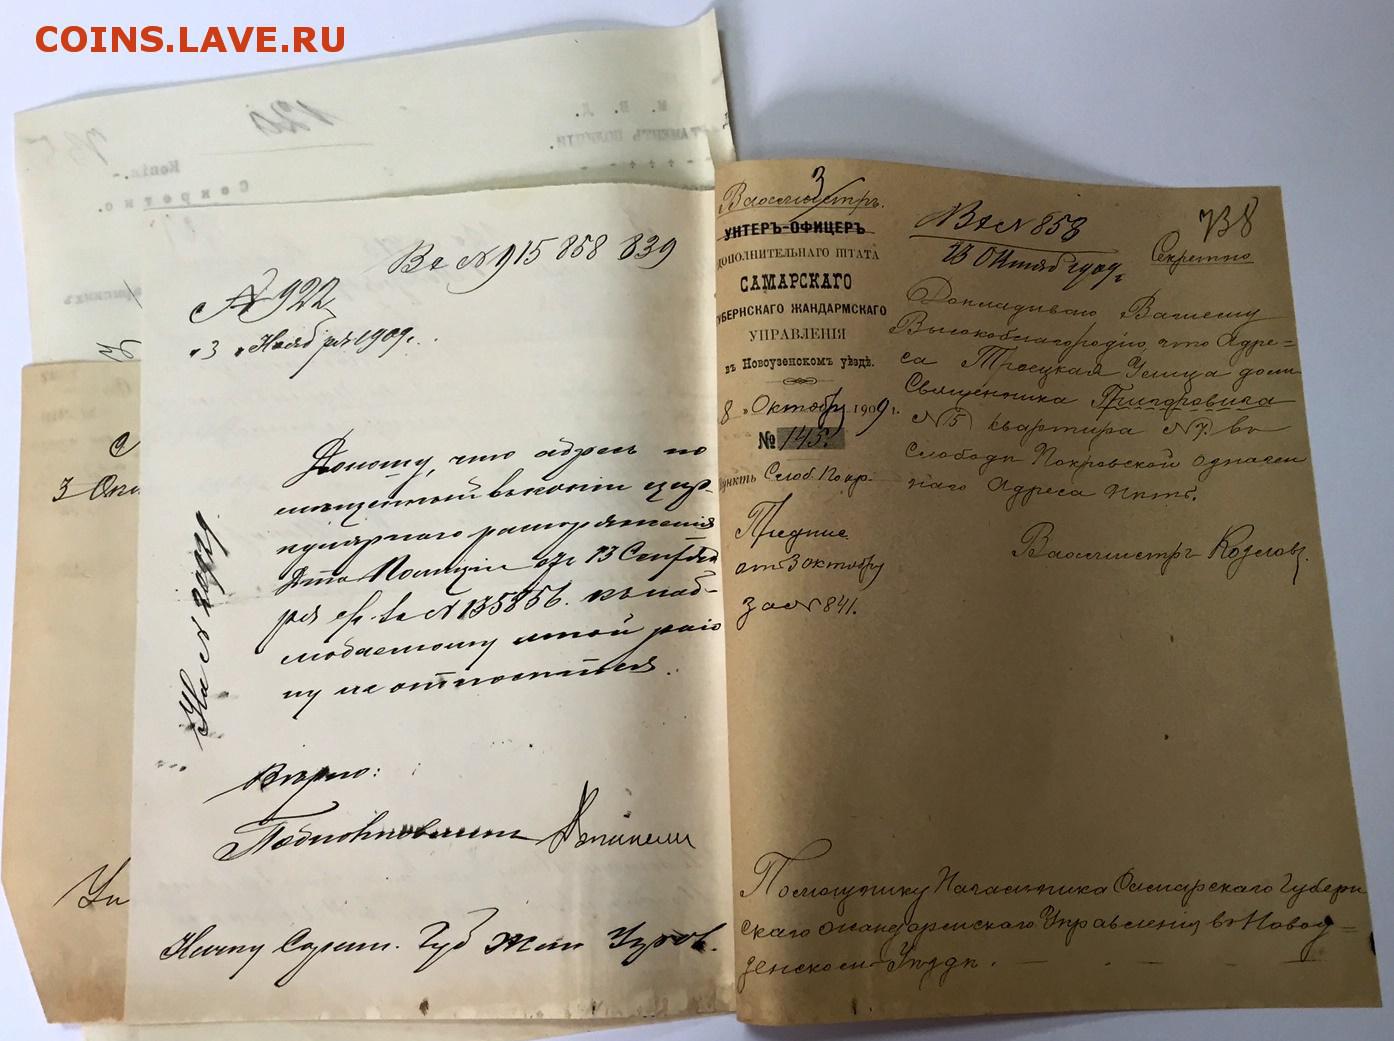 COINS.LAVE.RU
М. В. Д.
ТАМЕНТЪ ПОЛИЦІИ.
Копія.
Секретно.
120
Вх № 915 858 839
№ 922
"3" Ноября 1909 г.
На № 20992
Доношу, что адресъ по
мѣщенный въ копіи цир-
кулярнаго распоряженія
Д-та Полиціи отъ 13 Сентяб
ря с/г. за № 135856. къ наб-
людаемому мной раіо
ну не относится.
Вѣрно:
Подполковникъ
Нач-ку Сарат. Губ. Жан. Управ.
3 Ок
3
Вахмистръ.
УНТЕРЪ-ОФИЦЕРЪ
ДОПОЛНИТЕЛЬНАГО ШТАТА
САМАРСКАГО
ГУБЕРНСКАГО ЖАНДАРМСКАГО
УПРАВЛЕНІЯ
въ Новоузенскомъ уѣздѣ.
8 " Октября 1909 г.
№ 145.
Пунктъ Слоб. Покр.
Предпис.
от 3 октября
за № 841.
Вх № 858
13 Октяб 1909 г.
738
Секретно
Докладиваю Вашему
Высокоблагородію, что Адре=
са Троецкая Улица домъ
Священника Григоровича
№ 5 квартира № 7. во
Слободѣ Покровской означен
наго Адреса нѣтъ.
Вахмистръ Козловъ
Помощнику Начальника Самарскаго Губерн
скаго жандармскаго Управленія въ Новоу=
зенскомъ Уѣздѣ.